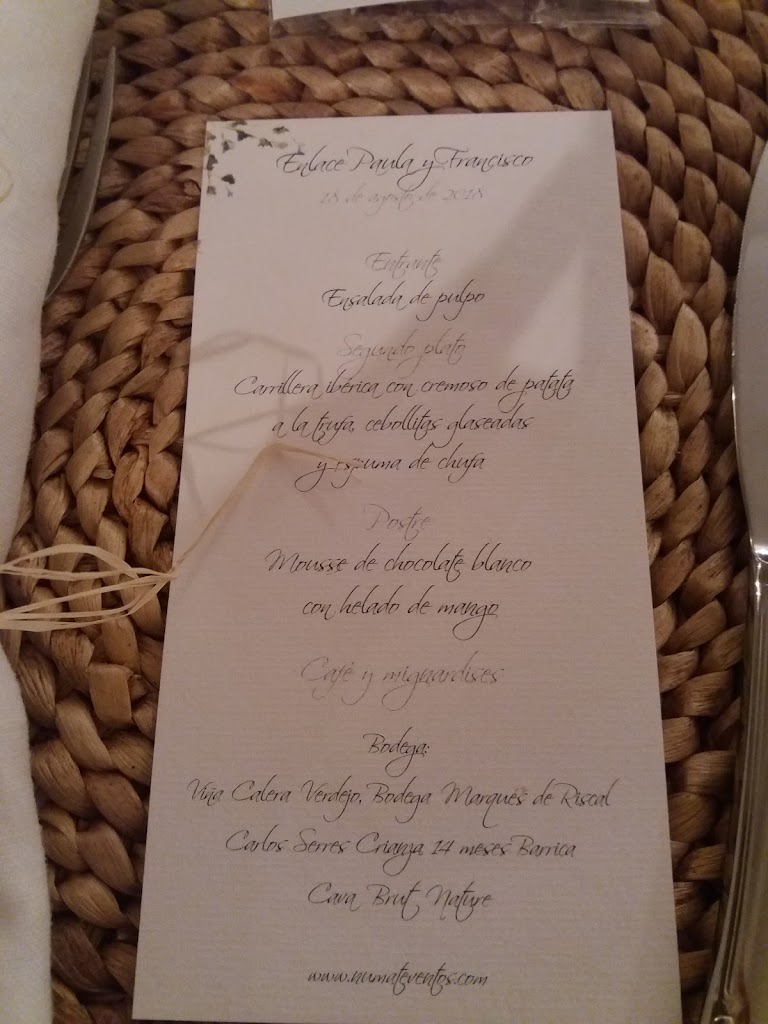 Enlace Paula y Francisco
18 de agosto de 2018
Entrante
Ensalada de pulpo
Segundo plato
Carrillera ibérica con cremoso de patata
a la trufa, cebollitas glaseadas
y espuma de chufa
Postre
Mousse de chocolate blanco
con helado de mango
Café y mignardises
Bodega:
Viña Calera Verdejo, Bodega Marqués de Riscal
Carlos Serres Crianza 14 meses Barrica
Cava Brut Nature
www.numateventos.com